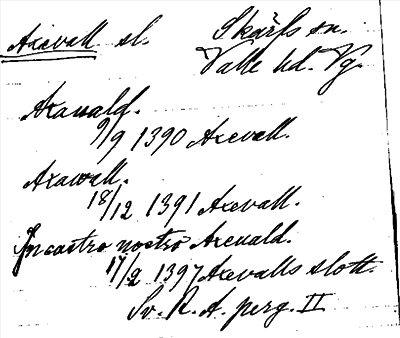 Axevall sl. Skärfs sn.
Valle hd. Vg.
Axauald.
9/9 1390 Axevall.
Axawall.
18/12 1391 Axevall.
In castro nostro Axeuald.
17/2 1397 Axevalls slott.
Sv. R. A. perg. II